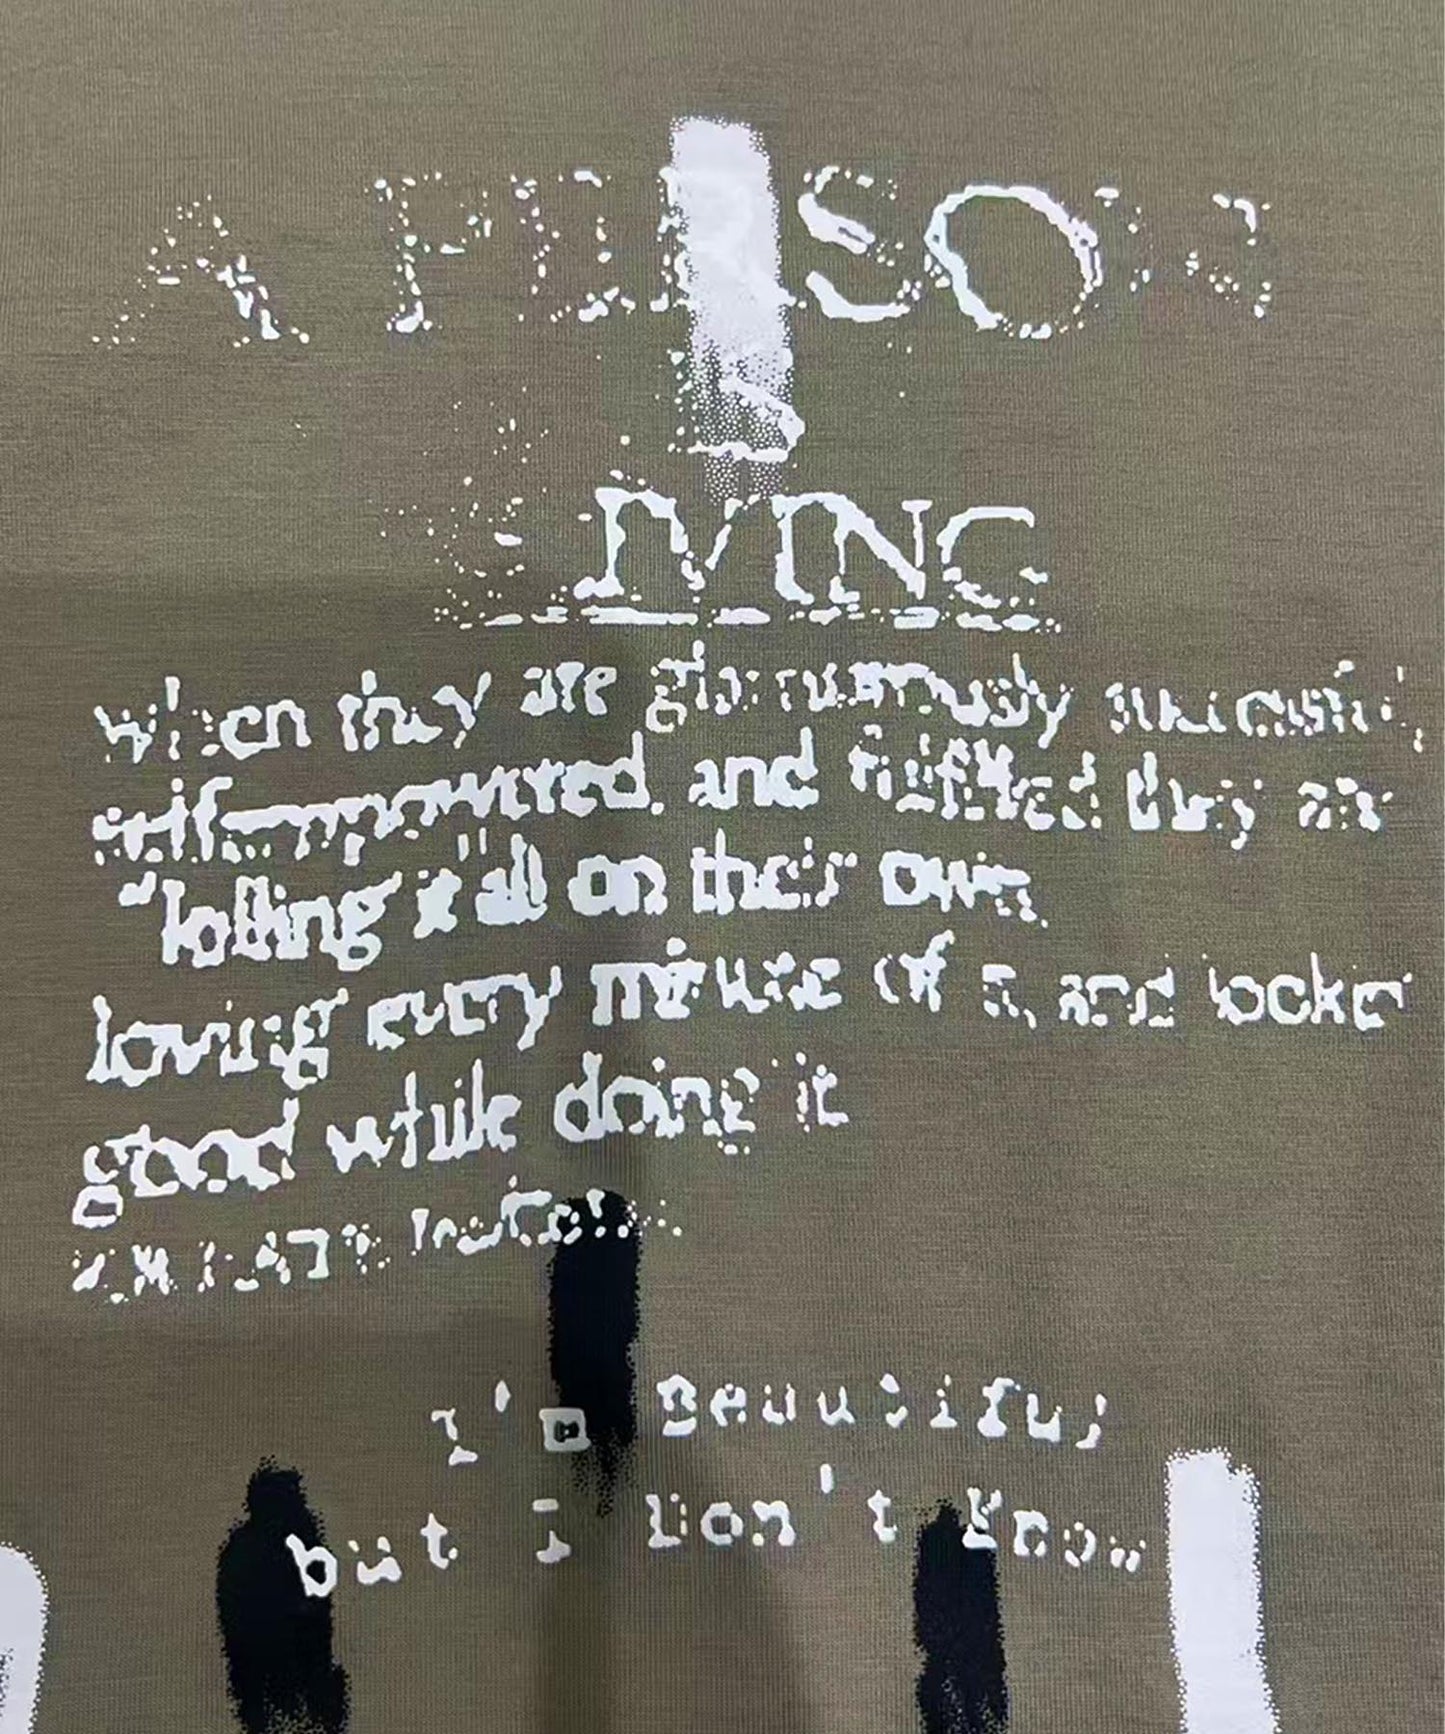 A PERSON
IS
LIVING
when they are gloriously
self-empowered, and fulfilled they are
it all on their own,
loving every minute of it, and
good while doing it
I'm Beautiful
but I Don't Know